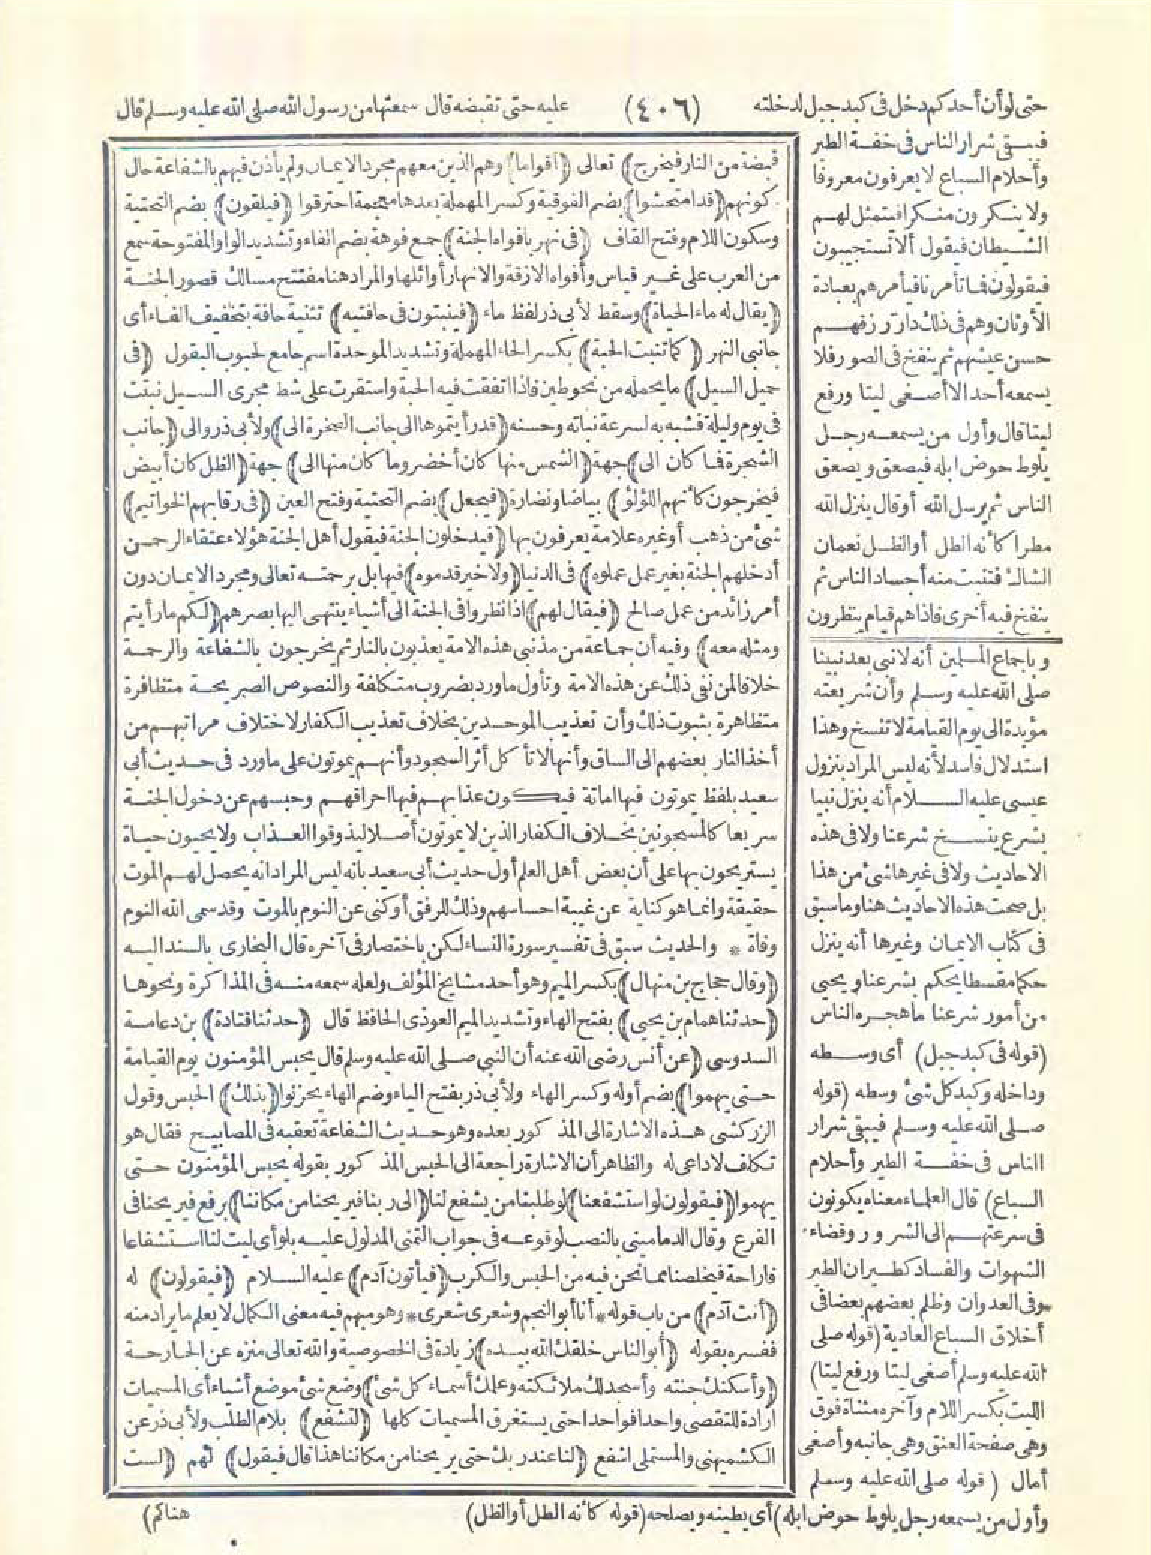 حتى لو أن أحدكم دخل فى كبد جبل لدخلته (٤٠٦) عليه حتى تقبضه قال سمعتها من رسول الله صلى الله عليه وسلم قال
فيبقى شرار الناس فى خفة الطير
وأحلام السباع لا يعرفون معروفا
ولا ينكرون منكرا فيتمثل لهم
الشيطان فيقول ألا تستجيبون
فيقولون فما تأمرنا فيأمرهم بعبادة
الأوثان وهم فى ذلك دار رزقهم
حسن عيشهم ثم ينفخ فى الصور فلا
يسمعه أحد الا أصغى ليتا ورفع
ليتا قال وأول من يسمعه رجل
يلوط حوض ابله فيصعق ويصعق
الناس ثم يرسل الله أو قال ينزل الله
مطرا كأنه الطل أو الظل نعمان
الشاك فتنبت منه أجساد الناس ثم
ينفخ فيه أخرى فاذا هم قيام ينظرون
وباجماع المسلمين أنه لا نبى بعد نبينا
صلى الله عليه وسلم وأن شريعته
مؤبدة الى يوم القيامة لا تنسخ وهذا
استدلال فاسد لأنه ليس المراد بنزول
عيسى عليه السلام أنه ينزل نبيا
بشرع ينسخ شرعنا ولا فى هذه
الاحاديث ولا فى غيرها شئ من هذا
بل صحت هذه الاحاديث هنا وما سبق
فى كتاب الايمان وغيرها أنه ينزل
حكما مقسطا يحكم بشرعنا ويحيى
من أمور شرعنا ما هجره الناس
(قوله فى كبد جبل) أى وسطه
وداخله وكبد كل شئ وسطه (قوله
صلى الله عليه وسلم فيبقى شرار
الناس فى خفة الطير وأحلام
السباع) قال العلماء معناه يكونون
فى سرعتهم الى الشرور وقضاء
الشهوات والفساد كطيران الطير
وفى العدوان وظلم بعضهم بعضا فى
أخلاق السباع العادية (قوله صلى
الله عليه وسلم أصغى ليتا ورفع ليتا)
الليت بكسر اللام وآخره مثناة فوق
وهى صفحة العنق وهى جانبه وأصغى
أمال (قوله صلى الله عليه وسلم
وأول من يسمعه رجل يلوط حوض ابله) أى يطينه ويصلحه (قوله كأنه الطل أو الظل)
قبضة من النار فيخرج) تعالى (أقواما) وهم الذين معهم مجرد الايمان ولم يأذن فيهم بالشفاعة حال
كونهم (قد امتحشوا) بضم الفوقية وكسر المهملة بعدها معجمة احترقوا (فيلقون) بضم التحتية
وسكون اللام وفتح القاف (فى نهر بافواه الجنة) جمع فوهة بضم الفاء وتشديد الواو المفتوحة سمع
من العرب على غير قياس وأفواه الازقة والانهار أوائلها والمراد هنا مفتتح مسالك قصور الجنة
(يقال له ماء الحياة) وسقط لأبى ذر لفظ ماء (فينبتون فى حافتيه) تثنية حافة بتخفيف الفاء أى
جانبى النهر (كما تنبت الحبة) بكسر الحاء المهملة وتشديد الموحدة اسم جامع لحبوب البقول (فى
حميل السيل) ما يحمله من نحو طين فاذا اتفقت فيه الحبة واستقرت على شط مجرى السيل نبتت
فى يوم وليلة فشبه به لسرعة نباته وحسنه (قد رأيتموها الى جانب الصخرة الى) ولأبى ذر والى (جانب
الشجرة فما كان الى) جهة (الشمس منها كان أخضر وما كان منها الى) جهة (الظل كان أبيض
فيخرجون كأنهم اللؤلؤ) بياضا ونضارة (فيجعل) بضم التحتية وفتح العين (فى رقابهم الخواتيم)
شئ من ذهب أو غيره علامة يعرفون بها (فيدخلون الجنة فيقول أهل الجنة هؤلاء عتقاء الرحمن
أدخلهم الجنة بغير عمل عملوه) فى الدنيا (ولا خير قدموه) فيها بل برحمته تعالى ومجرد الايمان دون
أمر زائد من عمل صالح (فيقال لهم) اذا نظروا فى الجنة الى أشياء ينتهى اليها بصرهم (لكم ما رأيتم
ومثله معه) وفيه أن جماعة من مذنبى هذه الامة يعذبون بالنار ثم يخرجون بالشفاعة والرحمة
خلافا لمن نفى ذلك عن هذه الامة وتأول ما ورد بضروب متكلفة والنصوص الصريحة متظافرة
متظاهرة بثبوت ذلك وأن تعذيب الموحدين بخلاف تعذيب الكفار لاختلاف مراتبهم من
أخذ النار بعضهم الى الساق وأنها لا تأكل أثر السجود وأنهم يموتون على ما ورد فى حديث أبى
سعيد بلفظ يموتون فيها اماتة فيكون عذابهم فيها احراقهم وحبسهم عن دخول الجنة
سريعا كالمسجونين بخلاف الكفار الذين لا يموتون أصلا ليذوقوا العذاب ولا يحيون حياة
يستريحون بها على أن بعض أهل العلم أول حديث أبى سعيد بانه ليس المراد انه يحصل لهم الموت
حقيقة وانما هو كناية عن غيبة احساسهم وذلك للرفق أو كنى عن النوم بالموت وقد سمى الله النوم
وفاة * والحديث سبق فى تفسير سورة النساء لكن باختصار فى آخره قال البخارى بالسند اليه
(وقال حجاج بن منهال) بكسر الميم وهو أحد مشايخ المؤلف ولعله سمعه منه فى المذاكرة ونحوها
(حدثنا همام بن يحيى) بفتح الهاء وتشديد الميم العوذى الحافظ قال (حدثنا قتادة) بن دعامة
السدوسى (عن أنس رضى الله عنه أن النبى صلى الله عليه وسلم قال يحبس المؤمنون يوم القيامة
حتى يهموا) بضم أوله وكسر الهاء ولأبى ذر بفتح الياء وضم الهاء يحزنوا (بذلك) الحبس وقول
الزركشى هذه الاشارة الى المذكور بعده وهو حديث الشفاعة تعقبه فى المصابيح فقال هو
تكلف لا داعى له والظاهر أن الاشارة راجعة الى الحبس المذكور بقوله يحبس المؤمنون حتى
يهموا (فيقولون لو استشفعنا) لو طلبنا من يشفع لنا (الى ربنا فيريحنا من مكاننا) برفع فيريحنا فى
الفرع وقال الدمامينى بالنصب لوقوعه فى جواب التمنى المدلول عليه بلو أى ليت لنا استشفاعا
فاراحة فيخلصنا مما نحن فيه من الحبس والكرب (فيأتون آدم) عليه السلام (فيقولون) له
(أنت آدم) من باب قوله * أنا أبو النجم وشعرى شعرى * وهو مبهم فيه معنى الكمال لا يعلم ما يراد منه
ففسره بقوله (أبو الناس خلقك الله بيده) زيادة فى الخصوصية والله تعالى منزه عن الجارحة
(وأسكنك جنته وأسجد لك ملائكته وعلمك أسماء كل شئ) وضع شئ موضع أشياء أى المسميات
ارادة للتقصى واحدا فواحدا حتى يستغرق المسميات كلها (لتشفع) بلام الطلب ولأبى ذر عن
الكشميهنى والمستملى اشفع (لنا عند ربك حتى يريحنا من مكاننا هذا قال فيقول) لهم (لست
هناكم)